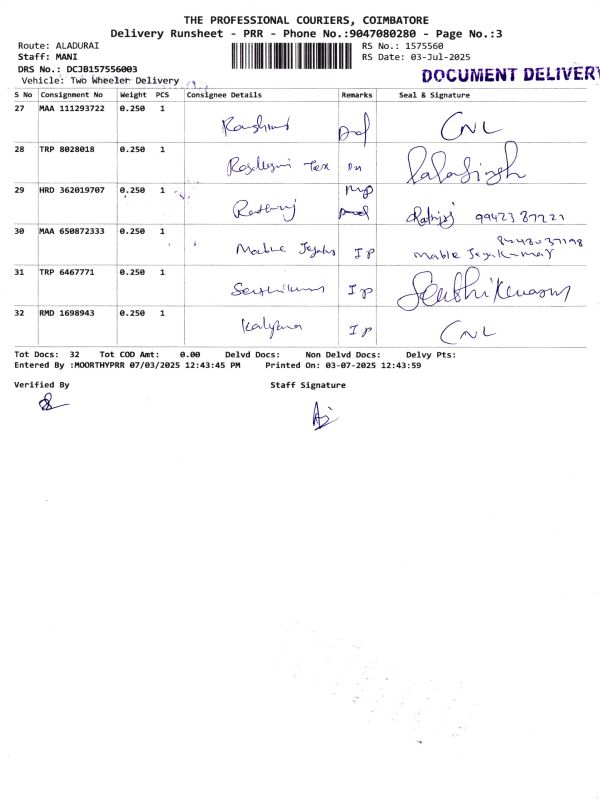 THE PROFESSIONAL COURIERS, COIMBATORE
Delivery Runsheet - PRR - Phone No.:9047080280 - Page No.:3
Route: ALADURAI RS No.: 1575560
Staff: MANI RS Date: 03-Jul-2025
DRS No.: DCJB157556003
DOCUMENT DELIVERY
Vehicle: Two Wheeler Delivery
S No Consignment No Weight PCS Consignee Details Remarks Seal & Signature
27 MAA 111293722 0.250 1 CNL
28 TRP 8028018 0.250 1 Tex
29 HRD 362019707 0.250 1 99423 87221
30 MAA 650872333 0.250 1 Mable IP Mable Jeyakumar
31 TRP 6467771 0.250 1 Senthilkumar IP Senthilkumar
32 RMD 1698943 0.250 1 Kalpana IP CNL
Tot Docs: 32 Tot COD Amt: 0.00 Delvd Docs: Non Delvd Docs: Delvy Pts:
Entered By :MOORTHYPRR 07/03/2025 12:43:45 PM Printed On: 03-07-2025 12:43:59
Verified By Staff Signature